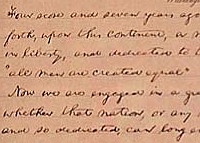 Four score and seven years ago
forth, upon this continent, a n
in liberty, and dedicated to t
"all men are created equal"
Now we are engaged in a gre
whether that nation, or any n
and so dedicated, can long en